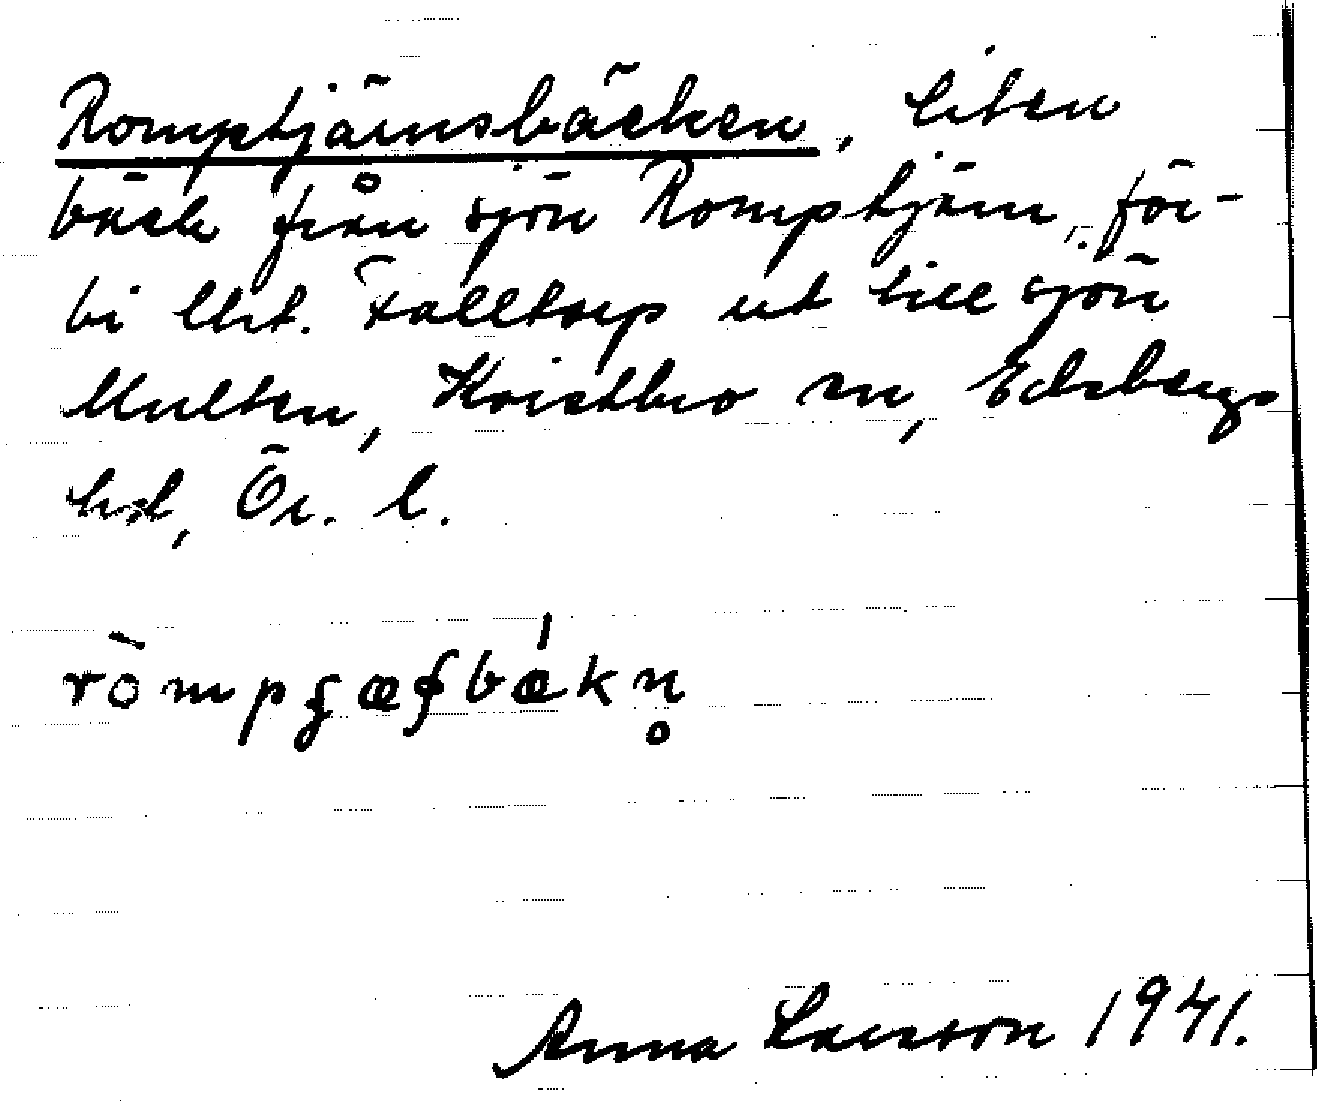 Romptjärnsbäcken, liten
bäck från sjön Romptjärn, för-
bi lht. Falltorp ut till sjön
Multen, Kvistbro sn, Edsbergs
hd, Ör. l.
Anna Larsson 1941.